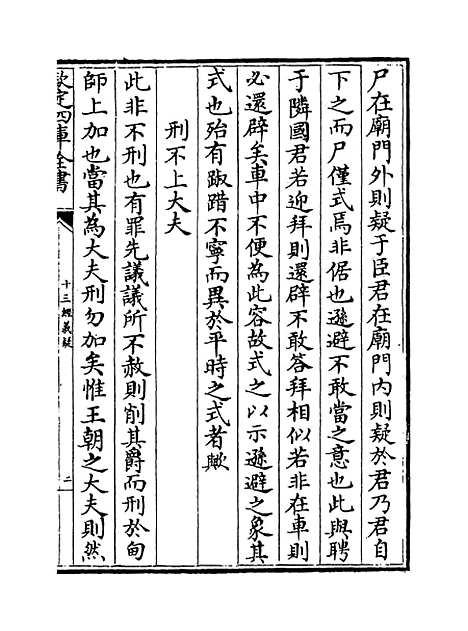 尸在廟門外則疑于臣君在廟門內則疑於君乃君自
下之而尸僅式焉非倨也遜避不敢當之意也此與聘
于隣國君若迎拜則還辟不敢答拜相似若非在車則
必還辟矣車中不便為此容故式之以示遜避之象其
式也殆有踧踖不寧而異於平時之式者歟
刑不上大夫
此非不刑也有罪先議議所不赦則削其爵而刑於甸
師上加也當其為大夫刑勿加矣惟王朝之大夫則然
欽定四庫全書
十三經義疑
二